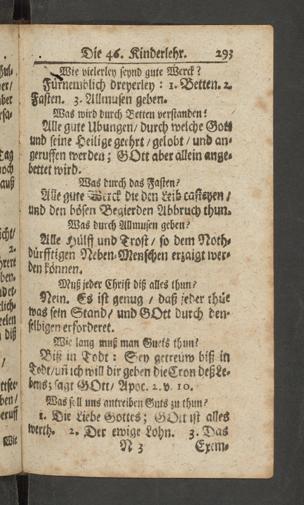 Die 46. Kinderlehr. 293
Wie vielerley seynd gute Werck?
Fürnemblich dreyerley: 1. Betten. 2.
Fasten. 3. Allmusen geben.
Was wird durch Betten verstanden?
Alle gute Ubungen/ durch welche Gott
und seine Heilige geehrt/ gelobt/ und an-
geruffen werden; GOtt aber allein ange-
bettet wird.
Was durch das Fasten?
Alle gute Werck die den Leib castiyen/
und den bösen Begierden Abbruch thun.
Was durch Allmusen geben?
Alle Hülff und Trost/ so dem Noth-
dürfftigen Neben-Menschen erzaigt wer-
den können.
Muß jeder Christ diß alles thun?
Nein. Es ist genug/ daß jeder thüe
was sein Stand/ und GOtt durch den-
selbigen erforderet.
Wie lang muß man Guets thun?
Biß in Todt: Sey getreuw biß in
Todt/ uñ ich will dir geben die Cron deß Le-
bens; sagt GOtt/ Apoc. 2. v. 10.
Was soll uns antreiben Guts zu thun?
1. Die Liebe Gottes; GOtt ist alles
werth. 2. Der ewige Lohn. 3. Das
N 3 Exem-